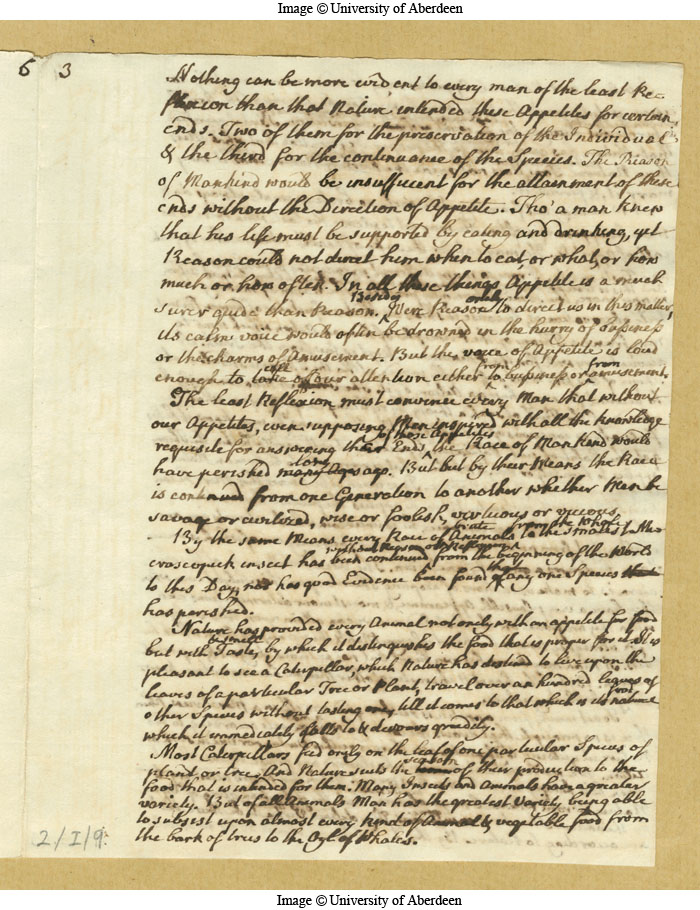 Image © University of Aberdeen
6 3
Nothing can be more evident to every man of the least Re-
flexion than that Nature intended these Appetites for certain
ends. Two of them for the preservation of the Individual
& the third for the continuance of the Species. The Reason
of Mankind would be insufficient for the attainment of these
ends without the Direction of Appetite. Tho' a man knew
that his life must be supported by eating and drinking, yet
Reason could not direct him when to eat, or what, or how
much or how often. In all these things Appetite is a much
Besides only
surer guide than Reason. Were Reason to direct us in this matter,
its calm voice would often be drowned in the hurry of business
or the charms of Amusement. But the voice of Appetite is loud
call from from
enough to take off our attention either to business or amusement.
The least Reflexion must convince every Man that without
our Appetites, even supposing Men inspired with all the knowledge
of those Appetites
requisite for answering their End, the Race of Mankind would
long
have perished many Ages ago. But but by their Means the Race
is continued from one Generation to another whether Men be
savage or civilized, wise or foolish, virtuous or vicious.
By the same Means every Race of Animals to the smallest Mi-
croscopick insect has been continued from the beginning of the World
to this Day, nor has good Evidence been found of any one Species that
has perished.
Nature has provided every Animal not only with an appetite for food
but with Taste, by which it distinguishes the food that is proper for it. It is
pleasant to see a Caterpillar, which Nature has destined to live upon the
leaves of a particular Tree or Plant, travel over an hundred leaves of
food
other Species without tasting one, till it comes to that which is its nature
which it immediately falls to & devours greedily.
Most Caterpillars feed only on the leaf of one particular Species of
season
plant, or tree, And Nature suits the of their production to the
food that is intended for them. Many Insects and Animals have a greater
variety. But of all Animals Man has the greatest variety being able
to subsist upon almost every kind of Animal & vegetable food from
the bark of trees to the Oyl of Whales.
2/I/9:
Image © University of Aberdeen